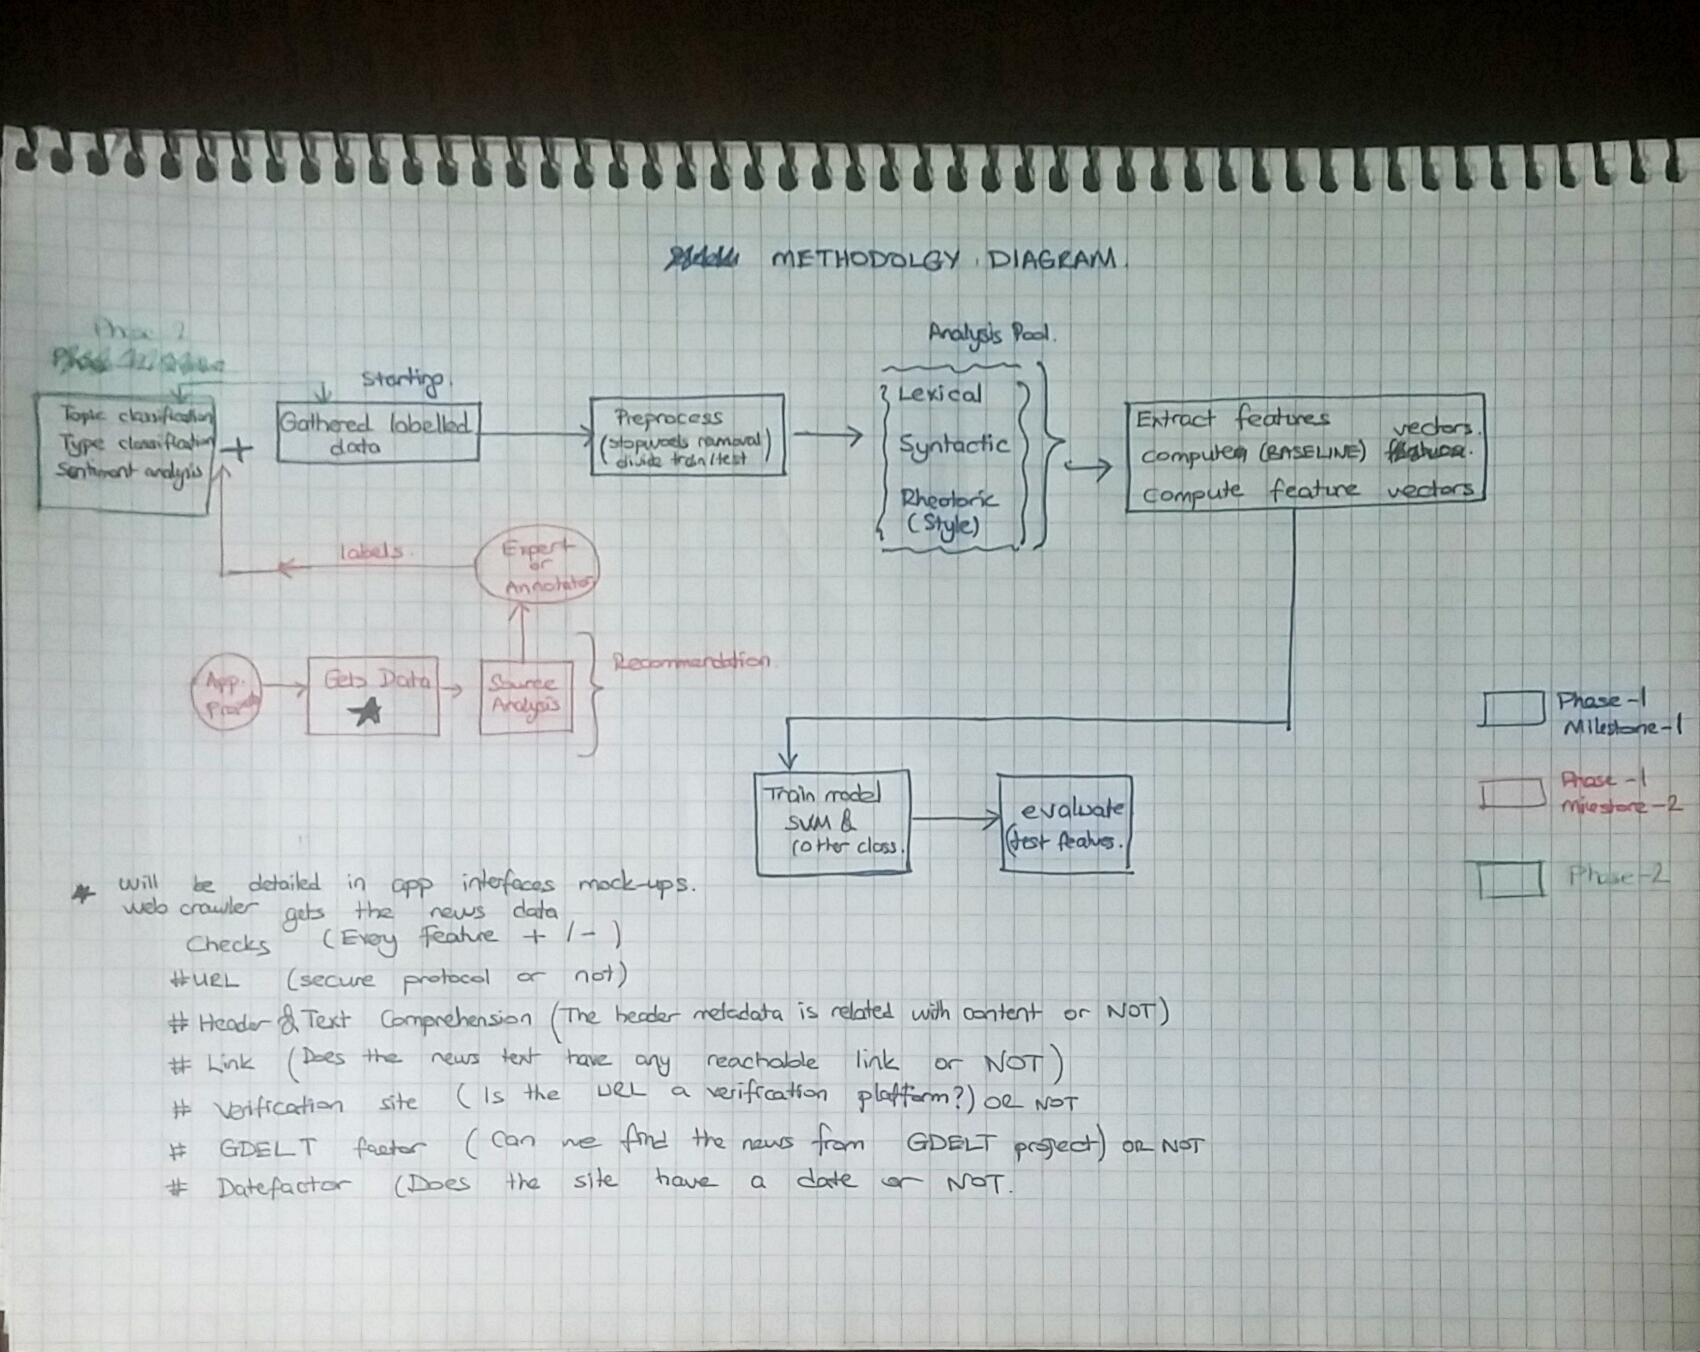 METHODOLGY DIAGRAM.
Phase 2
Starting.
Analysis Pool.
Topic classification
Type classification
Sentiment analysis
+
Gathered labelled
data
Preprocess
(stopwords removal)
divide train/test
Lexical
Syntactic
Rheotoric
(Style)
Extract features
vectors.
compute (BASELINE)
compute feature vectors
labels.
Expert
or
Annotator
App.
Gets Data
Source
Analysis
Recommendation
Train model
SVM &
(other class.
evaluate
(test features.
Phase-1
Milestone-1
Phase-1
milestone-2
Phase-2
* will be detailed in app interfaces mock-ups.
web crawler gets the news data
Checks (Every feature + / - )
# URL (secure protocol or not)
# Header & Text Comprehension (The header metadata is related with content or NOT)
# Link (Does the news text have any reachable link or NOT)
# Verification site ( Is the URL a verification platform?) OR NOT
# GDELT factor ( Can we find the news from GDELT project) OR NOT
# Datefactor (Does the site have a date or NOT.